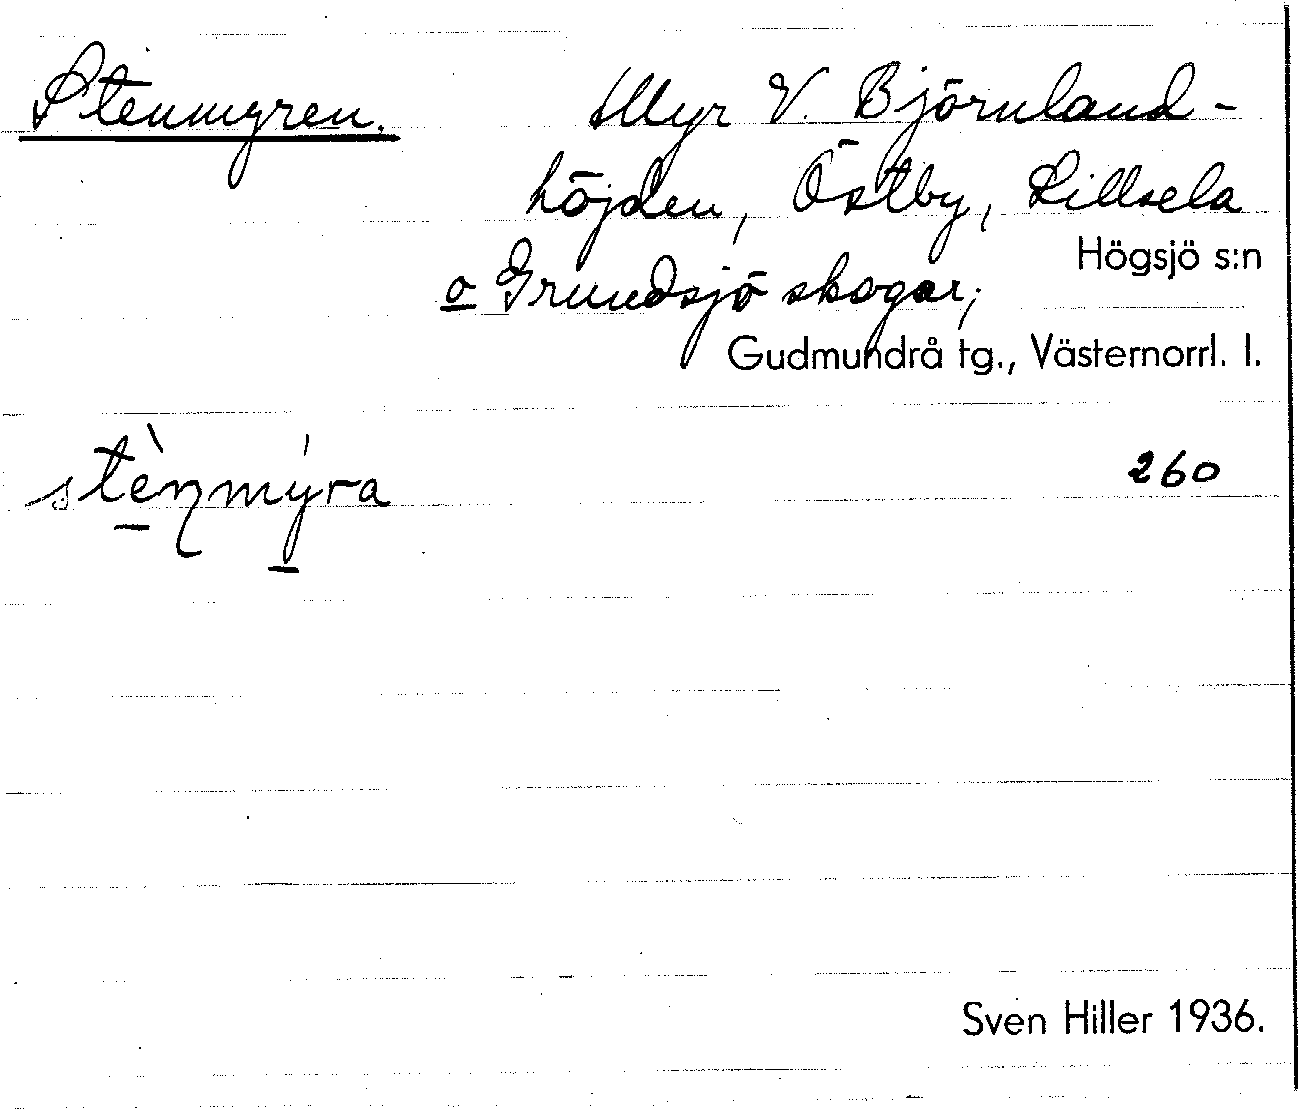 Stenmyren. Myr V. Björnland-
höjden, Östby, Lillsela
Högsjö s:n
o Grundsjö skogar;
Gudmundrå tg., Västernorrl. l.
stènmýra 260
Sven Hiller 1936.